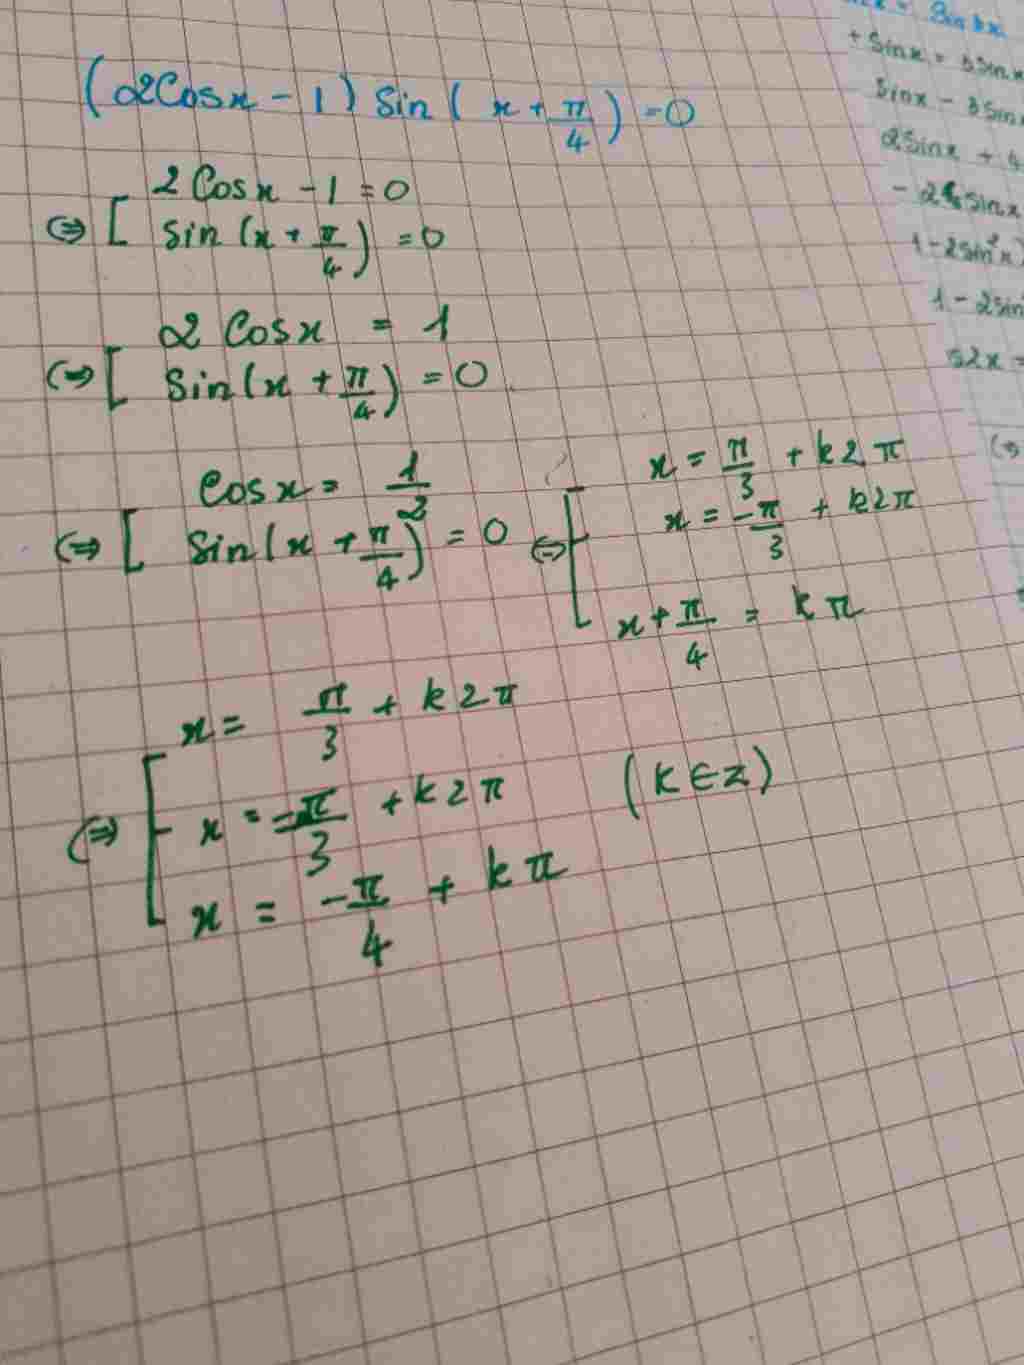 (2Cosx - 1) Sin ( x + π/4 ) = 0
2 Cosx - 1 = 0
⇔ [ Sin (x + π/4) = 0
2 Cosx = 1
⇔ [ Sin(x + π/4) = 0
Cosx = 1/2
⇔ [ Sin(x + π/4) = 0 ⇔ [
x = π/3 + k2π
x = -π/3 + k2π
x + π/4 = kπ
x = π/3 + k2π
⇔ [ x = -π/3 + k2π (k ∈ Z)
x = -π/4 + kπ
+ Sinx =
Sinx -
2Sinx + 4
1 - 2sin²x
1 - 2sin
s2x =
(⇔